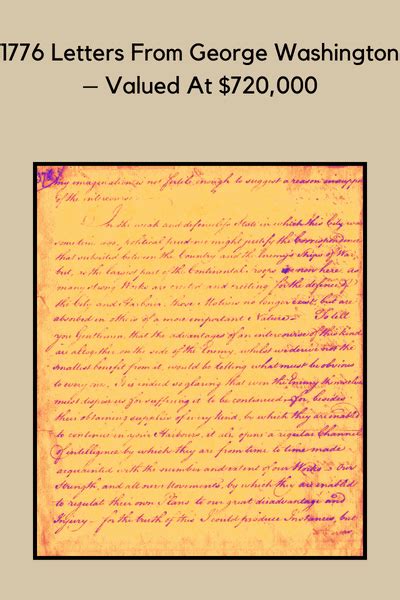 1776 Letters From George Washington
– Valued At $720,000
my imagination is not fertile enough to suggest a reason in support
of the intercourse.
In the weak and defenceless State in which this City was
some time ago, political prudence might justify the Correspondence
that subsisted between the Country and the Enemy's Ships of War
but, as the largest part of the Continental Troops now here as
many strong Works are erected and erecting for the defence of
the City and Harbour, those Motives no longer exist, but are
absorbed in others of a more important Nature To tell
you Gentlemen, that the advantages of an intercourse of this kind
are altogether on the side of the Enemy, whilst we derive not the
smallest benefit from it, would be telling what must be obvious
to every one. It is indeed so glaring that even the Enemy themselves
must despise us for suffering it to be continued. For, besides
their obtaining supplies of every kind, by which they are enabled
to continue in your Harbours, it also opens a regular Channel
of intelligence by which they are from time to time made
acquainted with the number and extent of our Works Our
Strength, and all our Movements, by which they are enabled
to regulate their own Plans to our great disadvantage and
Injury – for the truth of this I could produce Instances, but